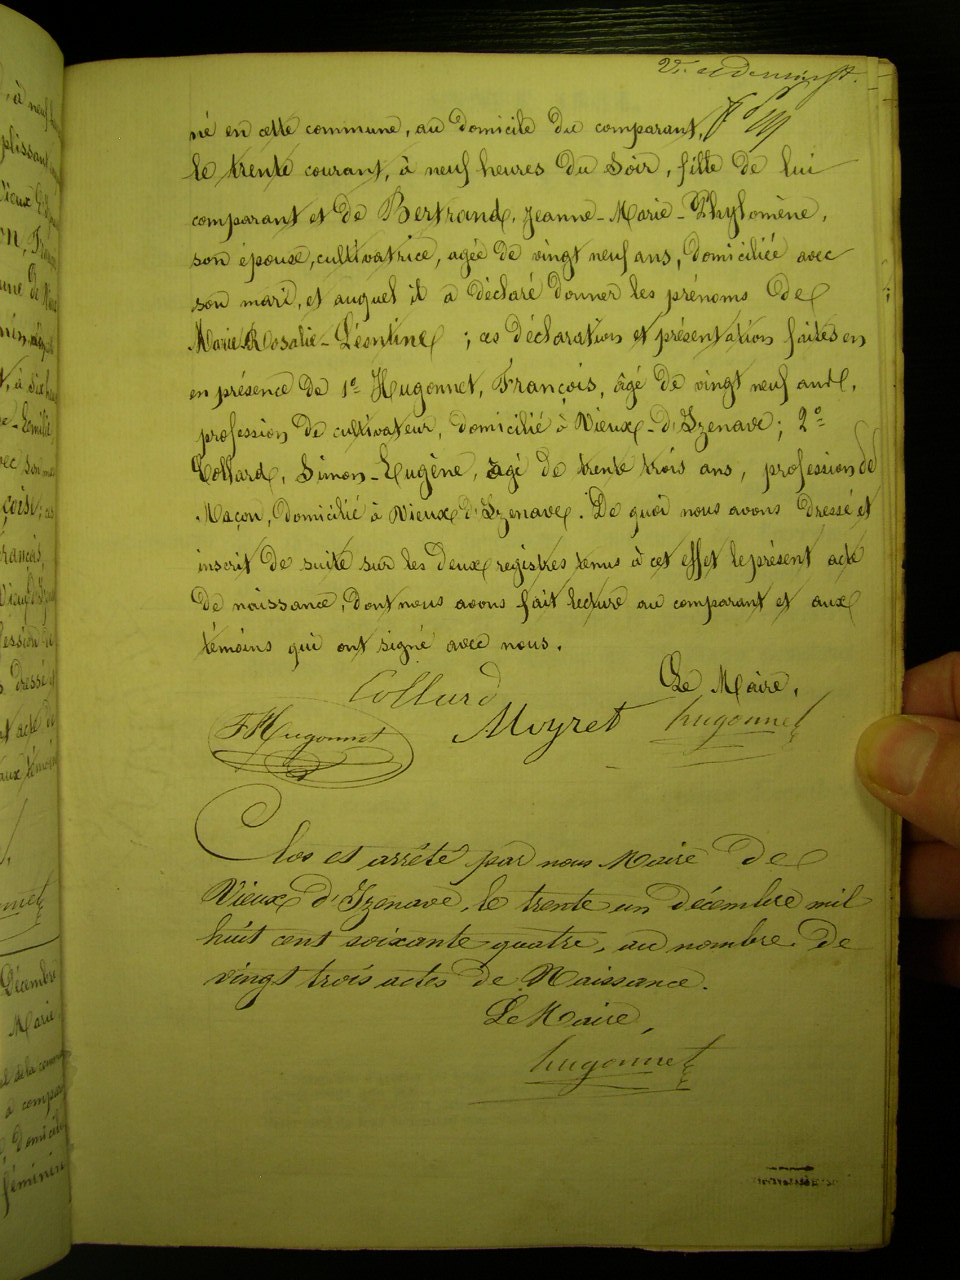 né en cette commune, au domicile du comparant,
le trente courant, à neuf heures du soir, fille de lui
comparant et de Bertrand, Jeanne-Marie-Phylomène,
son épouse, cultivatrice, agée de vingt neuf ans, domiciliée avec
son mari, et auquel il a déclaré donner les prénoms de
Marie Rosalie-Léontine ; ces déclaration et présentation faites en
en présence de 1º Hugonnet, François, âgé de vingt neuf ans,
profession de cultivateur, domicilié à Vieux-d'Izenave ; 2º
Collard, Simon-Eugène, agé de trente trois ans, profession de
Maçon, domicilié à Vieux d'Izenave. De quoi nous avons dressé et
inscrit de suite sur les deux registres tenus à cet effet le présent acte
de naissance, dont nous avons fait lecture au comparant et aux
témoins qui ont signé avec nous.
Le Maire,
Collard
F Hugonnet Moyret hugonnet
Clos et arrété par nous Maire de
Vieux d'Izenave, le trente un décembre mil
huit cent soixante quatre, au nombre de
vingt trois actes de Naissance.
Le Maire,
hugonnet